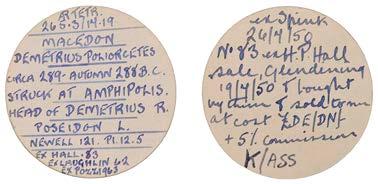 AR TETR.
265·3/14·19
MACEDON
DEMETRIUS POLIORCETES
CIRCA 289-AUTUMN 288 B.C.
STRUCK AT AMPHIPOLIS.
HEAD OF DEMETRIUS R.
POSEIDON L.
NEWELL 121. Pl.12.5
EX HALL·83
EX LAUGHLIN 62
EX POZZI 963
ex Spink
26/4/50
No 83 ex H.P. Hall
sale, Glendening
19/4/50 bought
by them & sold to me
at cost £DE/DN/-
+ 5% commission
K/ASS